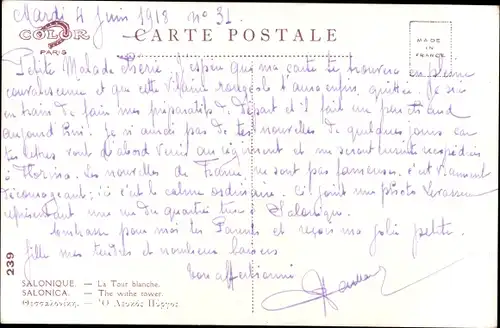 Mardi 4 Juin 1918 n° 31.
COLOR
PARIS
CARTE POSTALE
MADE IN FRANCE
Petite Malade chérie J'espère que ma carte te trouvera en pleine
convalescence et que cette vilaine rougeole t'aura enfin quittée. Je suis
en train de faire mes préparatifs de départ et il fait un peu chaud
aujourd'hui. Je n'aurai pas de tes nouvelles de quelques jours car
tes lettres vont d'abord venir au régiment et me seront ensuite expédiées
à Florina. Les nouvelles de France ne sont pas fameuses. c'est vraiment
décourageant; ici c'est le calme ordinaire. Ci joint une photo
représentant une vue du quartier turc à Salonique.
Embrasse pour moi tes Parents et reçois ma jolie petite
fille mes tendres et nombreux baisers
Ton affectionné
239
SALONIQUE. — La Tour blanche.
SALONICA. — The withe tower.
Θεσσαλονίκη. — Ὁ Λευκὸς Πύργος